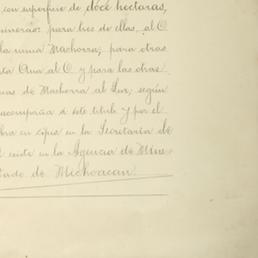 con superficie de doce hectaras,
para tres de ellas, al O.
la mina Machorra; para otras
Ana al O. y para las otras
de Machorra al Sur, segun
acompaña á este titulo y por el
obra en copia en la Secretaría de
existe en la Agencia de Mine-
tado de Michoacan.